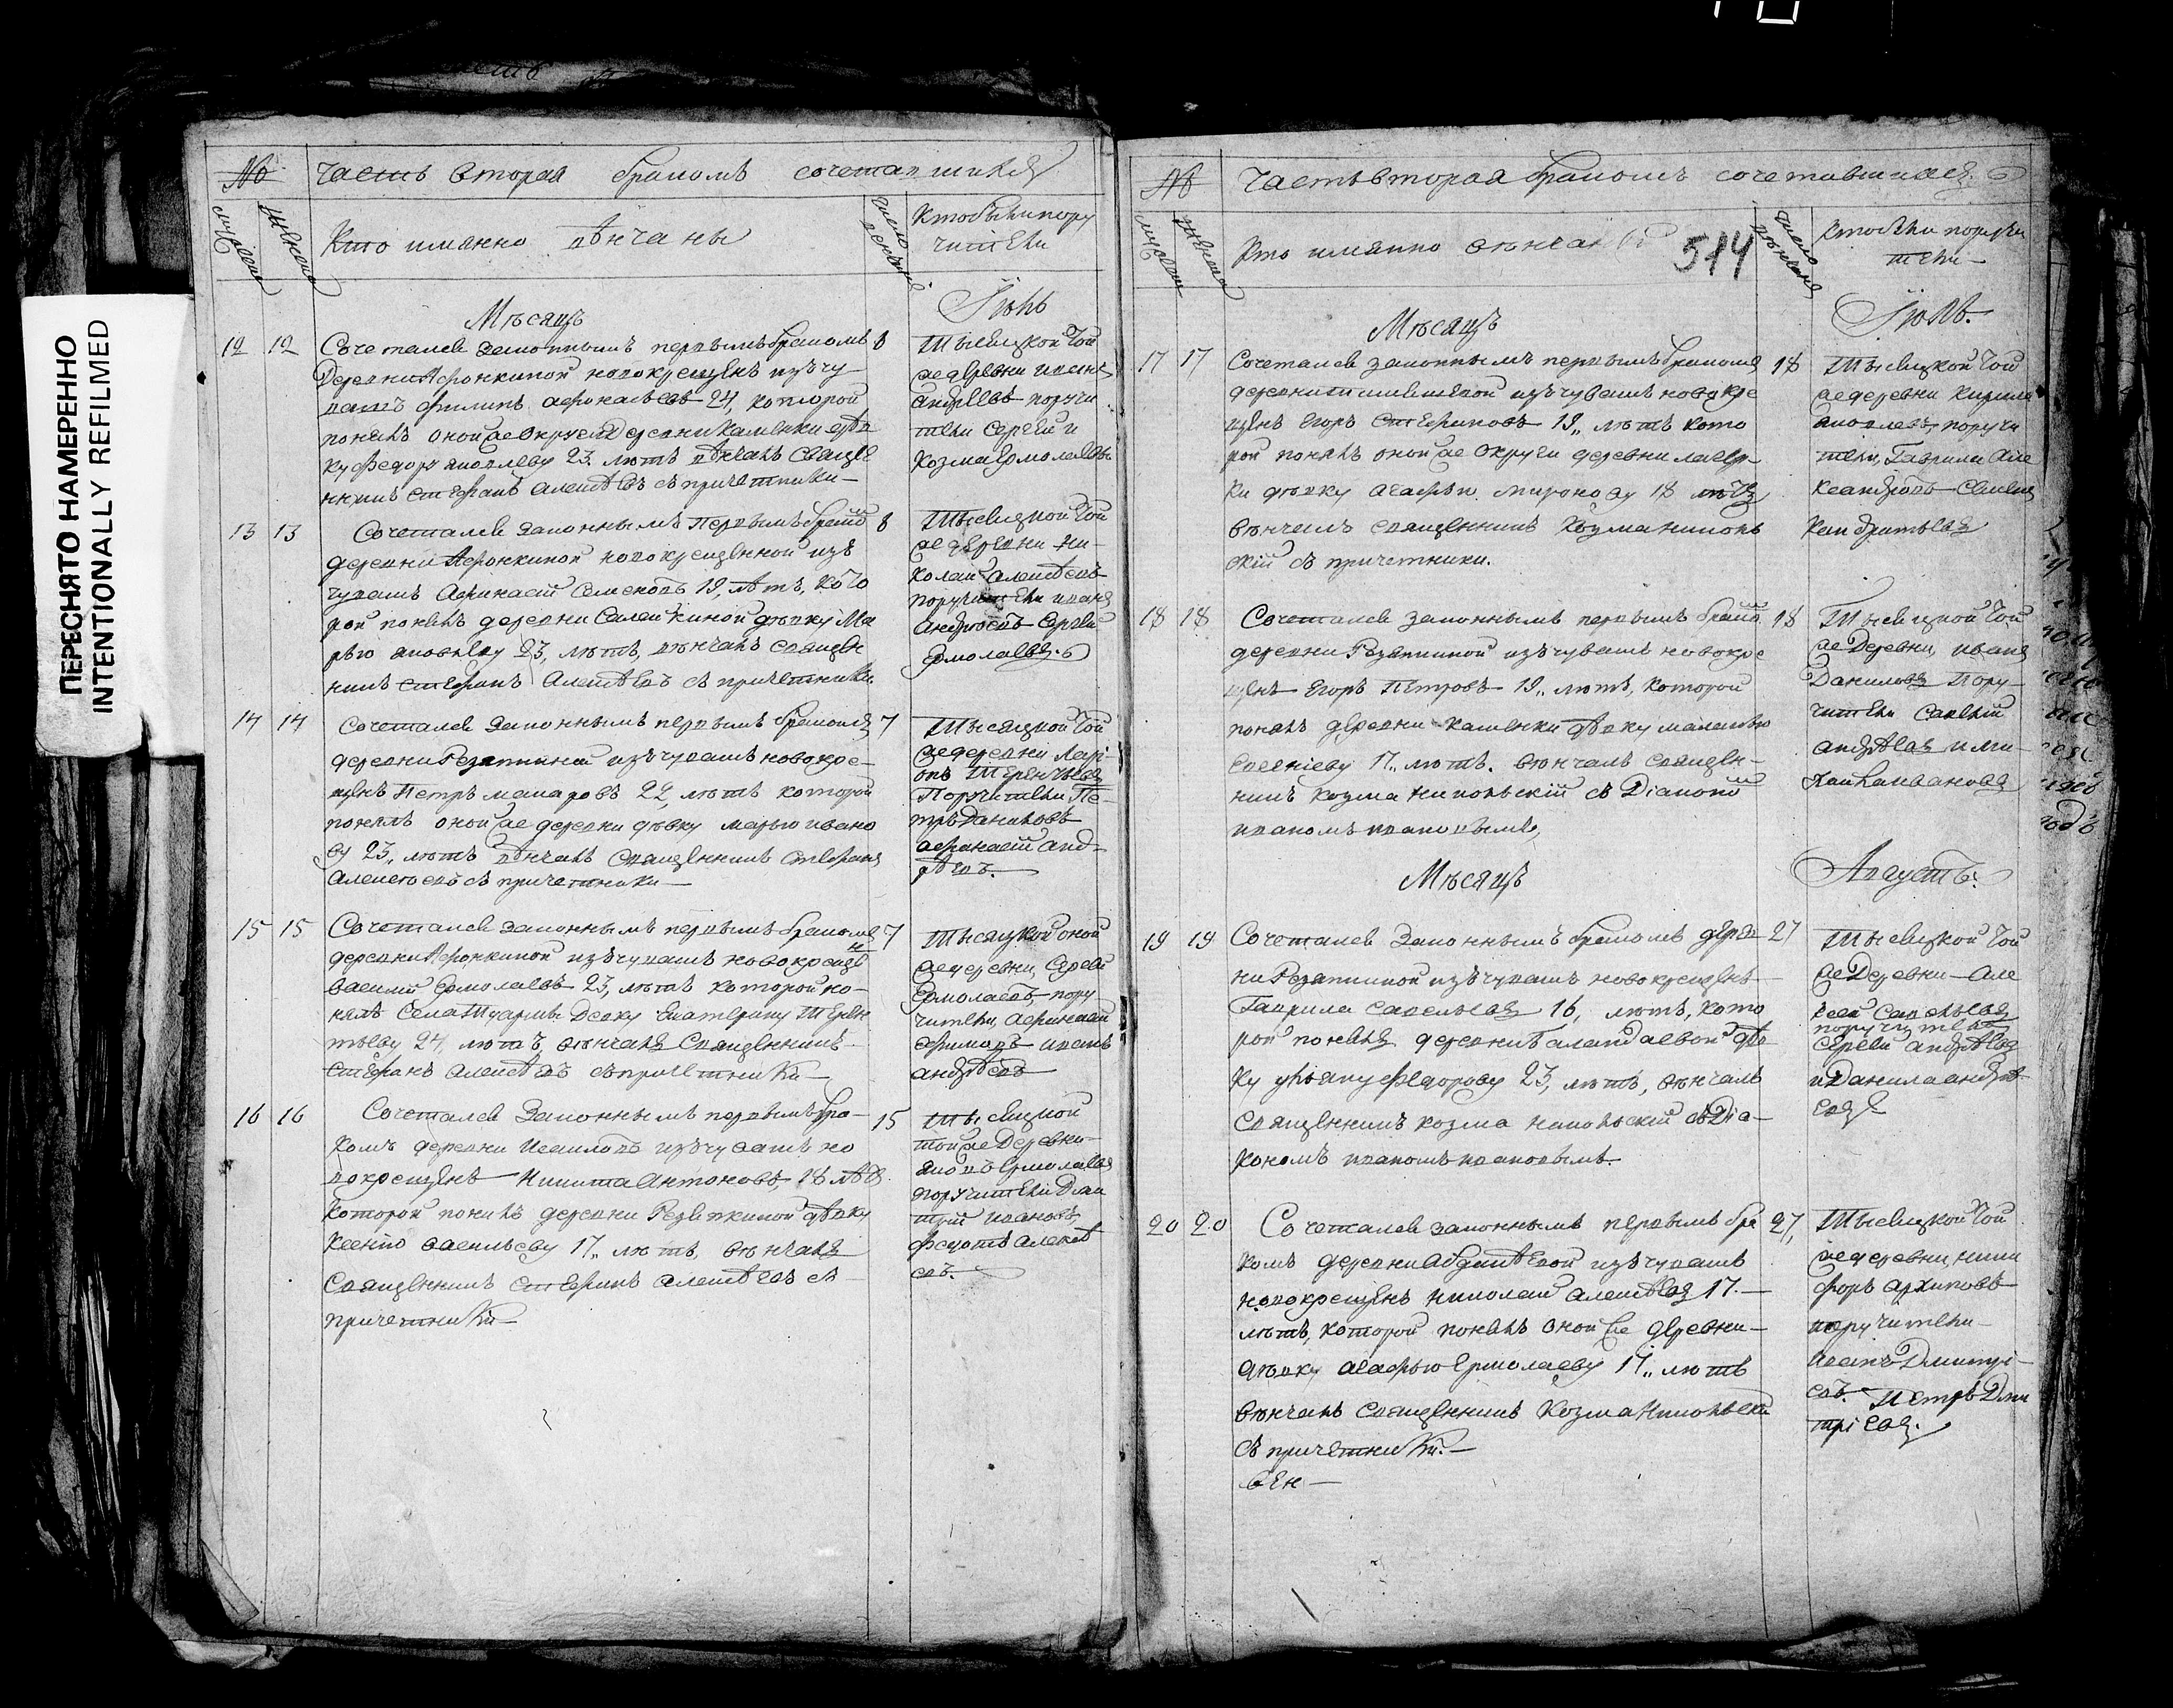 ПЕРЕСНЯТО НАМЕРЕННО
INTENTIONALLY REFILMED
№ Часть вторая бракомъ сочетавшихся
Кто имянно вѣнчаны
Кто были пору
чители
Мѣсяцъ Іюнь
12 12 Сочетался законнымъ первымъ бракомъ 8
деревни Афонкиной новокрещенъ изъ чу
вашъ Филипъ Афонасьевъ 24, которой
понялъ оной же округи деревни Каменки дѣв
ку Федору Яковлеву 23 лѣтъ вѣнчалъ священ
никъ Стефанъ Алексѣевъ съ причетники
Тысяцкой той
же деревни Иванъ
Андреевъ поручи
тели Сергей и
Козма Ермолаевы
13 13 Сочетался законнымъ первымъ брако 8
деревни Афонкиной новокрещенной изъ
чувашъ Афанасей Семеновъ 19, лѣтъ, кото
рой понялъ деревни Савелькиной дѣвку Ма
рью Яковлеву 23, лѣтъ, вѣнчалъ священ
никъ Стефанъ Алексѣевъ съ причетники
Тысяцкой той
же деревни Ни
колай Алексѣевъ
поручители Иванъ
Андреевъ Сергей
Ермолаевъ
14 14 Сочетался законнымъ первымъ бракомъ 7
деревни Резяпкиной изъ чувашъ новокре
щенъ Петръ Макаровъ 22 лѣтъ которой
понялъ оной же деревни дѣвку Марью Ивано
ву 23, лѣтъ вѣнчалъ священникъ Стефанъ
Алексѣевъ съ причетники
Тысяцкой той
же деревни Лари
онъ Терентьевъ
Поручители Пе
тръ Даниловъ
Афанасей Анд
рѣевъ.
15 15 Сочетался законнымъ первымъ бракомъ 7
деревни Афонкиной изъ чувашъ новокрещен
Василей Ермолаевъ 23, лѣтъ которой по
нялъ села Туармы девку Екатерину Терен
тьеву 24, лѣтъ, вѣнчалъ священникъ
Стефанъ Алексѣевъ съ причетники
Тысяцкой оной
же деревни, Сергей
Ермолаевъ пору
чители, Афанасей
Иванъ
Андрѣевъ
16 16 Сочетался законнымъ первымъ бра
комъ деревни изъ чувашъ но
вокрещенъ Никита Антоновъ, 18 лѣтъ
которой понялъ деревни Резяпкиной дѣвку
Ксенію Васильеву 17,, лѣтъ, вѣнчалъ
священникъ Стефанъ Алексѣевъ съ
причетники
15 Тысяцкой
той же деревни
Яковъ Ермолаевъ
поручители Дми
трій Ивановъ,
Федотъ Алексѣ
евъ.
№ Часть вторая бракомъ сочетавшихся
Кто имянно вѣнчаны 514
Кто были поручи
тели
Мѣсяцъ Іюль.
17 17 Сочетался законнымъ первымъ бракомъ 18
деревни изъ чувашъ новокре
щенъ Егоръ Стефановъ 19,, лѣтъ кото
рой понялъ оной же округи деревни
ки дѣвку Агафью Миронову 18 лѣтъ
вѣнчалъ священникъ Козма Николь
скій съ причетники.
Тысяцкой той
же деревни Кирила
Яковлевъ, поручи
тели, Гаврила Але
ксандровъ Савелей
Кондратьевъ
18 18 Сочетался законнымъ первымъ брако 18
деревни Резяпкиной изъ чувашъ новокре
щенъ Егоръ Петровъ 19,, лѣтъ, которой
понялъ деревни Каменки дѣвку Маланью
Евсевіеву 17,, лѣтъ. вѣнчалъ священ
никъ Козма Никольскій съ Діакономъ
Иваномъ Ивановымъ,
Тысяцкой той
же деревни, Иванъ
Даниловъ Пору
чители Савелій
Андрѣевъ и
Мѣсяцъ Августъ.
19 19 Сочетался законнымъ бракомъ дерев 27
ни Резяпкиной изъ чувашъ новокрещенъ
Гаврила Савельевъ 16, лѣтъ, кото
рой понялъ деревни дѣв
ку Ульяну Федорову 23, лѣтъ, вѣнчалъ
священникъ Козма Никольскій съ Діа
кономъ Иваномъ Ивановымъ.
Тысяцкой той
же деревни Але
ксей Савельевъ
поручители
Сергей Андрѣевъ
и Данила Андрѣ
евъ
20 20 Сочетался законнымъ первымъ бра 27,
комъ деревни Абдикѣевой изъ чувашъ
новокрещенъ Николай Алексѣевъ 17.
лѣтъ, которой понялъ оной же деревни
дѣвку Агафью Ермолаеву 17,, лѣтъ
вѣнчалъ священникъ Козма Никольскій
съ причетники.
Тысяцкой той
же деревни, Ники
форъ Архиповъ
поручители
Иванъ Дмитрі
евъ. Петръ Дми
тріевъ.